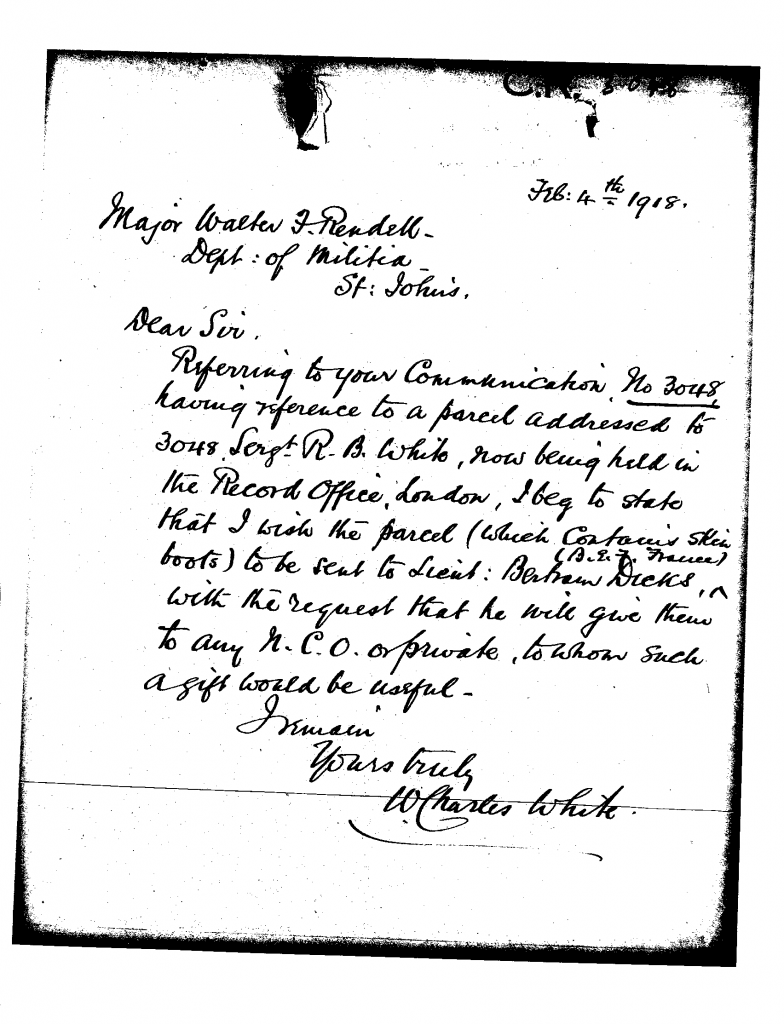 C.R.
Feb: 4th 1918.
Major Walter F. Rendell-
Dept: of Militia-
St: John's.
Dear Sir.
Referring to your Communication, No 3048,
having reference to a parcel addressed to
3048, Sergt R. B. White, now being held in
the Record Office, London, I beg to state
that I wish the parcel (which Contains Skin
boots) to be sent to Lieut: Bertram Dicks, ^ (B.E.F. France)
with the request that he will give them
to any N.C.O. or private, to whom such
a gift would be useful-
I remain
Yours truly
W. Charles White.